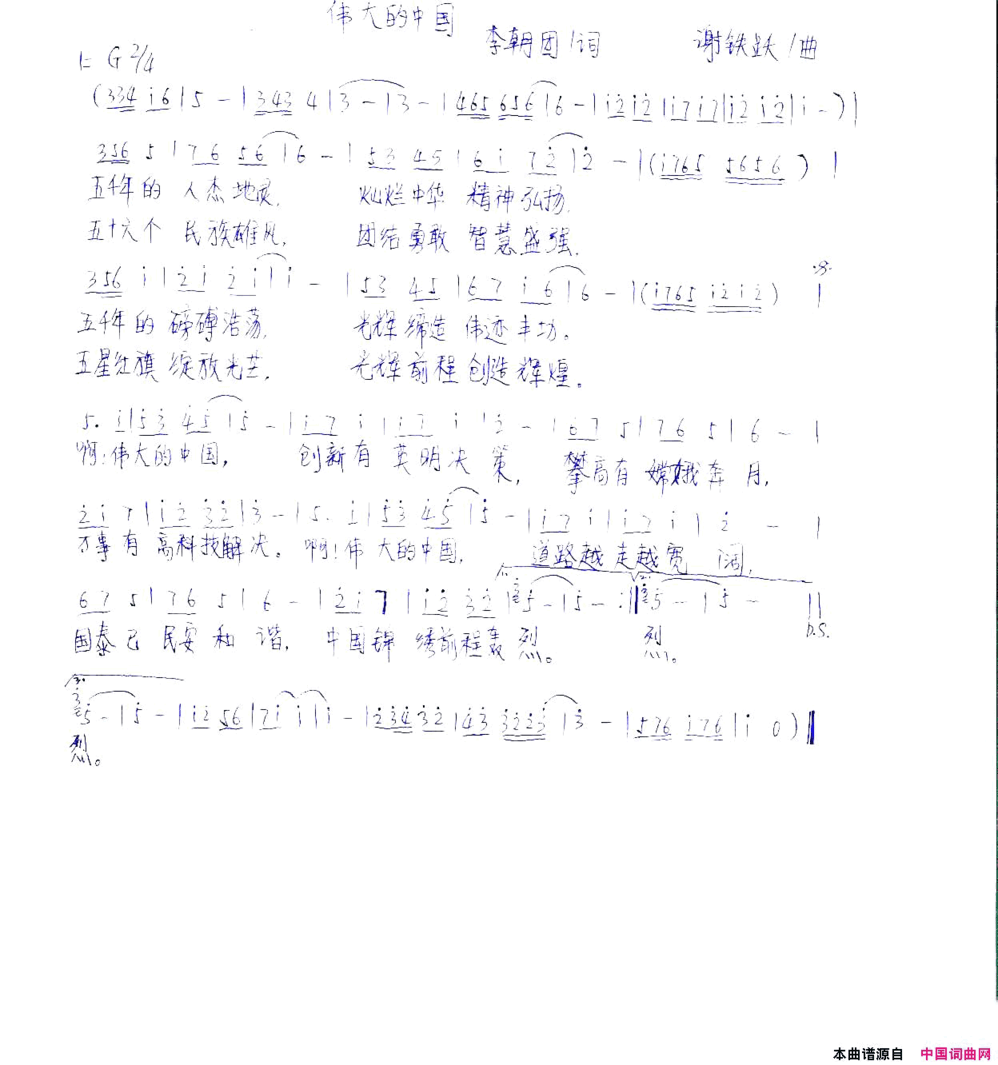 伟大的中国
李朝团/词 谢铁跃/曲
1= G 2/4
(334 i6|5 -|343 4|3 -|3 -|465 656|6 -|i2 i2|i7 i7|i2 i2|i -)|
356 5|76 56|6 -|53 45|6i 72|2 -|(i765 5656)|
五千年的 人杰地灵, 灿烂中华 精神弘扬.
五十六个 民族雄风, 团结勇敢 智慧盛强.
356 i|2i 2i|i -|53 45|67 i6|6 -|(i765 i2i2)|
五千年的 磅礴浩荡, 光辉缔造 伟迹丰功。
五星红旗 绽放光芒, 光辉前程 创造辉煌。
5. i|53 45|5 -|i7 i|i7 i|2 -|67 5|76 5|6 -|
啊:伟大的中国, 创新有 英明决 策, 攀高有 嫦娥奔 月,
2i 7|i2 32|3 -|5. i|53 45|5 -|i7 i|i7 i|2 -|
万事有 高科技解决. 啊!伟 大的中国, 道路越走越宽 阔,
67 5|76 5|6 -|2i 7|i2 32|5 -|5 -:||5 -|5 -||
D.S.
国泰 民安和 谐, 中国锦 绣前程轰 烈。 烈。
5 -|5 -|i2 56|7i i|i -|234 32|43 3223|3 -|576 i76|i 0)||
烈。
本曲谱源自 中国词曲网